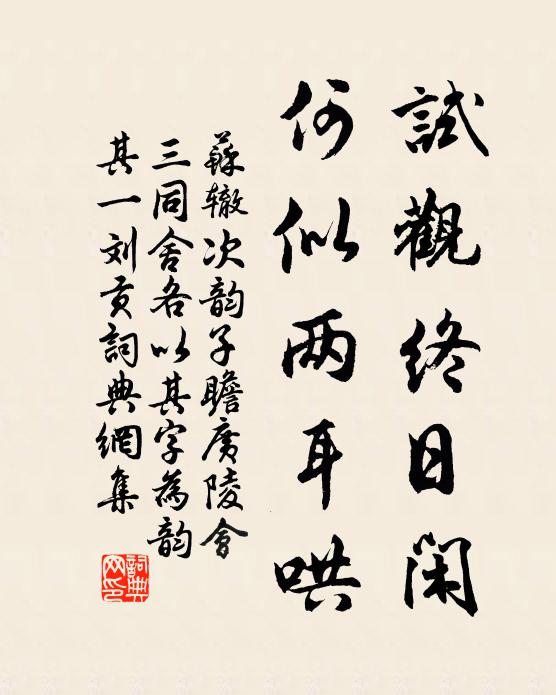 試觀終日閑
何似两耳哄
蘇辙次韵子瞻廣陵會
三同舍各以其字為韵
其一刘贡詞典網集
詞典
网印